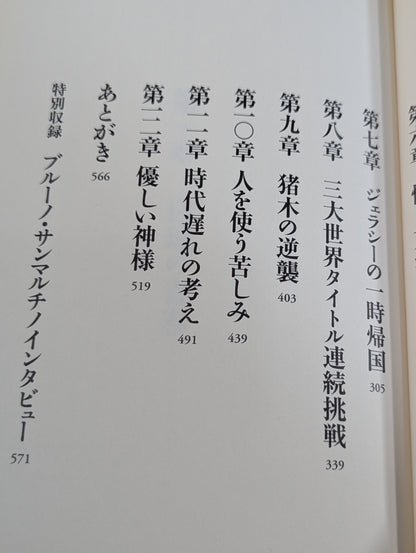 第七章　ジェラシーの一時帰国 305
第八章　三大世界タイトル連続挑戦 339
第九章　猪木の逆襲 403
第一〇章　人を使う苦しみ 439
第一一章　時代遅れの考え 491
第一二章　優しい神様 519
あとがき 566
特別収録　ブルーノ・サンマルチノインタビュー 571